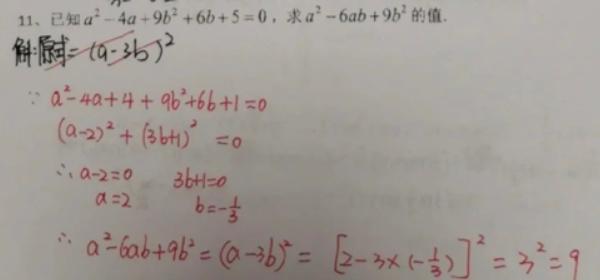 11、已知a²-4a+9b²+6b+5=0，求a²-6ab+9b²的值.
解:原式=(a-3b)²
∵ a²-4a+4+9b²+6b+1=0
(a-2)²+(3b+1)²=0
∴ a-2=0 3b+1=0
a=2 b=-1/3
∴ a²-6ab+9b²=(a-3b)²=[2-3×(-1/3)]²=3²=9